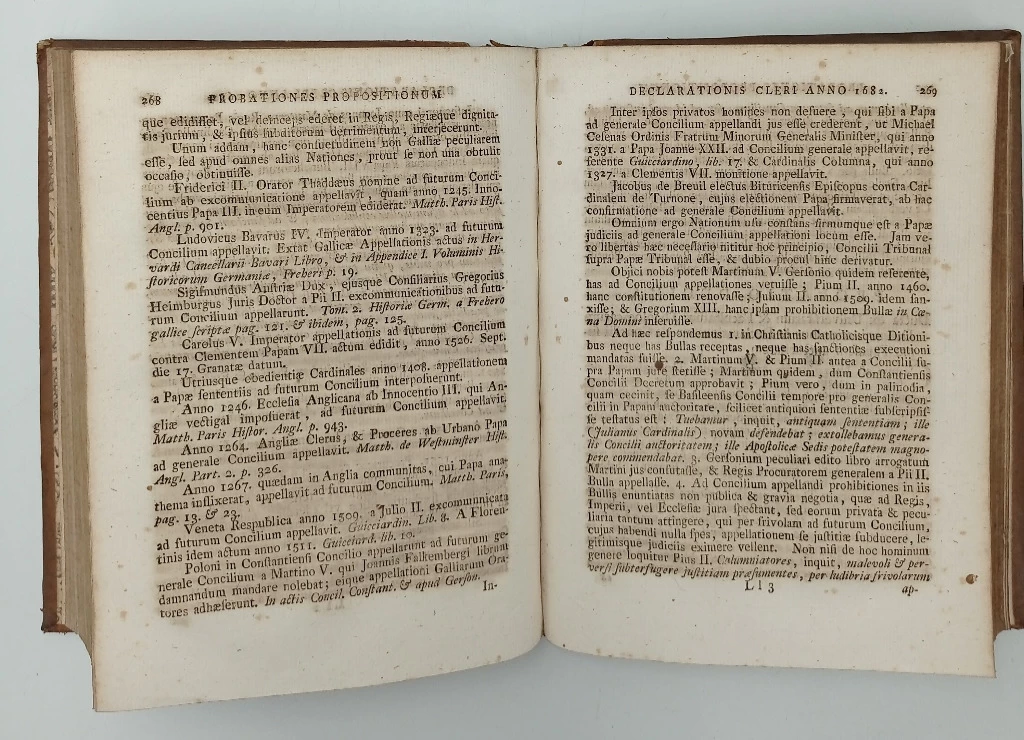 268 PROBATIONES PROPOSITIONUM
que edidisset, vel deinceps ederet in Regis, Regiæque dignita-
tis jurium, & ipsius subditorum detrimentum, interjecerunt.
Unum addam, hanc consuetudinem non Galliæ peculiarem
esse, sed apud omnes alias Nationes, prout se non una obtulit
occasio, obtinuisse.
Friderici II. Orator Thaddæus nomine ad futurum Conci-
lium ab excommunicatione appellavit, quam anno 1245. Inno-
centius Papa III. in eum Imperatorem ediderat. Matth. Paris Hist.
Angl. p. 901.
Ludovicus Bavarus IV. Imperator anno 1323. ad futurum
Concilium appellavit. Extat Gallicæ Appellationis actus in Her-
vardi Cancellarii Bavari Libro, & in Appendice I. Voluminis Hi-
storicorum Germaniæ, Freheri p. 19.
Sigismundus Austriæ Dux, ejusque Consiliarius Gregorius
Heimburgus Juris Doctor a Pii II. excommunicationibus ad futu-
rum Concilium appellarunt. Tom. 2. Historiæ Germ. a Frehero
gallice scriptæ pag. 121. & ibidem, pag. 125.
Carolus V. Imperator appellationis ad futurum Concilium
contra Clementem Papam VII. actum edidit, anno 1526. Sept.
die 17. Granatæ datum.
Utriusque obedientiæ Cardinales anno 1408. appellationem
a Papæ sententiis ad futurum Concilium interposuerunt.
Anno 1246. Ecclesia Anglicana ab Innocentio III. qui An-
gliæ vectigal imposuerat, ad futurum Concilium appellavit.
Matth. Paris Histor. Angl. p. 943.
Anno 1264. Angliæ Clerus, & Proceres ab Urbano Papa
ad generale Concilium appellavit. Matth. de Westminster Hist.
Angl. Part. 2. p. 326.
Anno 1267. quædam in Anglia communitas, cui Papa ana-
thema inflixerat, appellavit ad futurum Concilium. Matth. Paris,
pag. 13. & 23.
Veneta Respublica anno 1509. a Julio II. excommunicata
ad futurum Concilium appellavit. Guicciardin. Lib. 8. A Floren-
tinis idem actum anno 1511. Guicciard. lib. 10.
Poloni in Constantiensi Concilio appellarunt ad futurum ge-
nerale Concilium a Martino V. qui Joannis Falkembergi librum
damnandum mandare nolebat; eique appellationi Galliarum Ora-
tores adhæserunt. In actis Concil. Constant. & apud Gerson.
In-
DECLARATIONIS CLERI ANNO 1682. 269
Inter ipsos privatos homines non defuere, qui sibi a Papa
ad generale Concilium appellandi jus esse crederent, ut Michael
Cesenas Ordinis Fratrum Minorum Generalis Minister, qui anno
1331. a Papa Joanne XXII. ad Concilium generale appellavit, re-
ferente Guicciardino, lib. 17. & Cardinalis Columna, qui anno
1327. a Clementis VII. monitione appellavit.
Jacobus de Breuil electus Bituricensis Episcopus contra Car-
dinalem de Turnone, cujus electionem Papa firmaverat, ab hac
confirmatione ad generale Concilium appellavit.
Omnium ergo Nationum usu constans firmumque est a Papæ
judiciis ad generale Concilium appellationi locum esse. Jam ve-
ro libertas hæc necessario nititur hoc principio, Concilii Tribunal
supra Papæ Tribunal esse, & dubio procul hinc derivatur.
Objici nobis potest Martinum V. Gersonio quidem referente,
has ad Concilium appellationes vetuisse; Pium II. anno 1460.
hanc constitutionem renovasse; Julium II. anno 1509. idem san-
xisse; & Gregorium XIII. hanc ipsam prohibitionem Bullæ in Cœ-
na Domini inseruisse.
Ad hæc respondemus 1. in Christianis Catholicisque Ditioni-
bus neque has Bullas receptas, neque has sanctiones executioni
mandatas fuisse. 2. Martinum V. & Pium II. antea a Concilii su-
pra Papam jure stetisse; Martinum quidem, dum Constantiensis
Concilii Decretum approbavit; Pium vero, dum in palinodia,
quam cecinit, se Basileensis Concilii tempore pro generalis Con-
cilii in Papam auctoritate, scilicet antiquiori sententiæ subscripsis-
se testatus est: Tuebamur, inquit, antiquam sententiam; ille
(Julianus Cardinalis) novam defendebat; extollebamus genera-
lis Concilii auctoritatem; ille Apostolicæ Sedis potestatem magno-
pere commendabat. 3. Gersonium peculiari edito libro arrogatum
Martini jus confutasse, & Regis Procuratorem generalem a Pii II.
Bulla appellasse. 4. Ad Concilium appellandi prohibitiones in iis
Bullis enuntiatas non publica & gravia negotia, quæ ad Regis,
Imperii, vel Ecclesiæ jura spectant, sed eorum privata & pecu-
liaria tantum attingere, qui per frivolam ad futurum Concilium,
cujus habendi nulla spes, appellationem se justitiæ subducere, le-
gitimisque judiciis eximere vellent. Non nisi de hoc hominum
genere loquitur Pius II. Calumniatores, inquit, malevoli & per-
versi subterfugere justitiam præsumentes, per ludibria frivolarum
L l 3 ap-